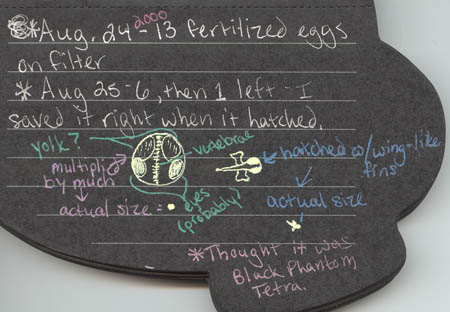 * Aug. 24 2000 - 13 fertilized eggs
on filter
* Aug 25-6, then 1 left - I
saved it right when it hatched.
yolk?
vertebrae
multipli
by much
actual size =
eyes
(probably)
hatched w/wing-like
fins
actual size
* Thought it was
Black Phantom
Tetra.